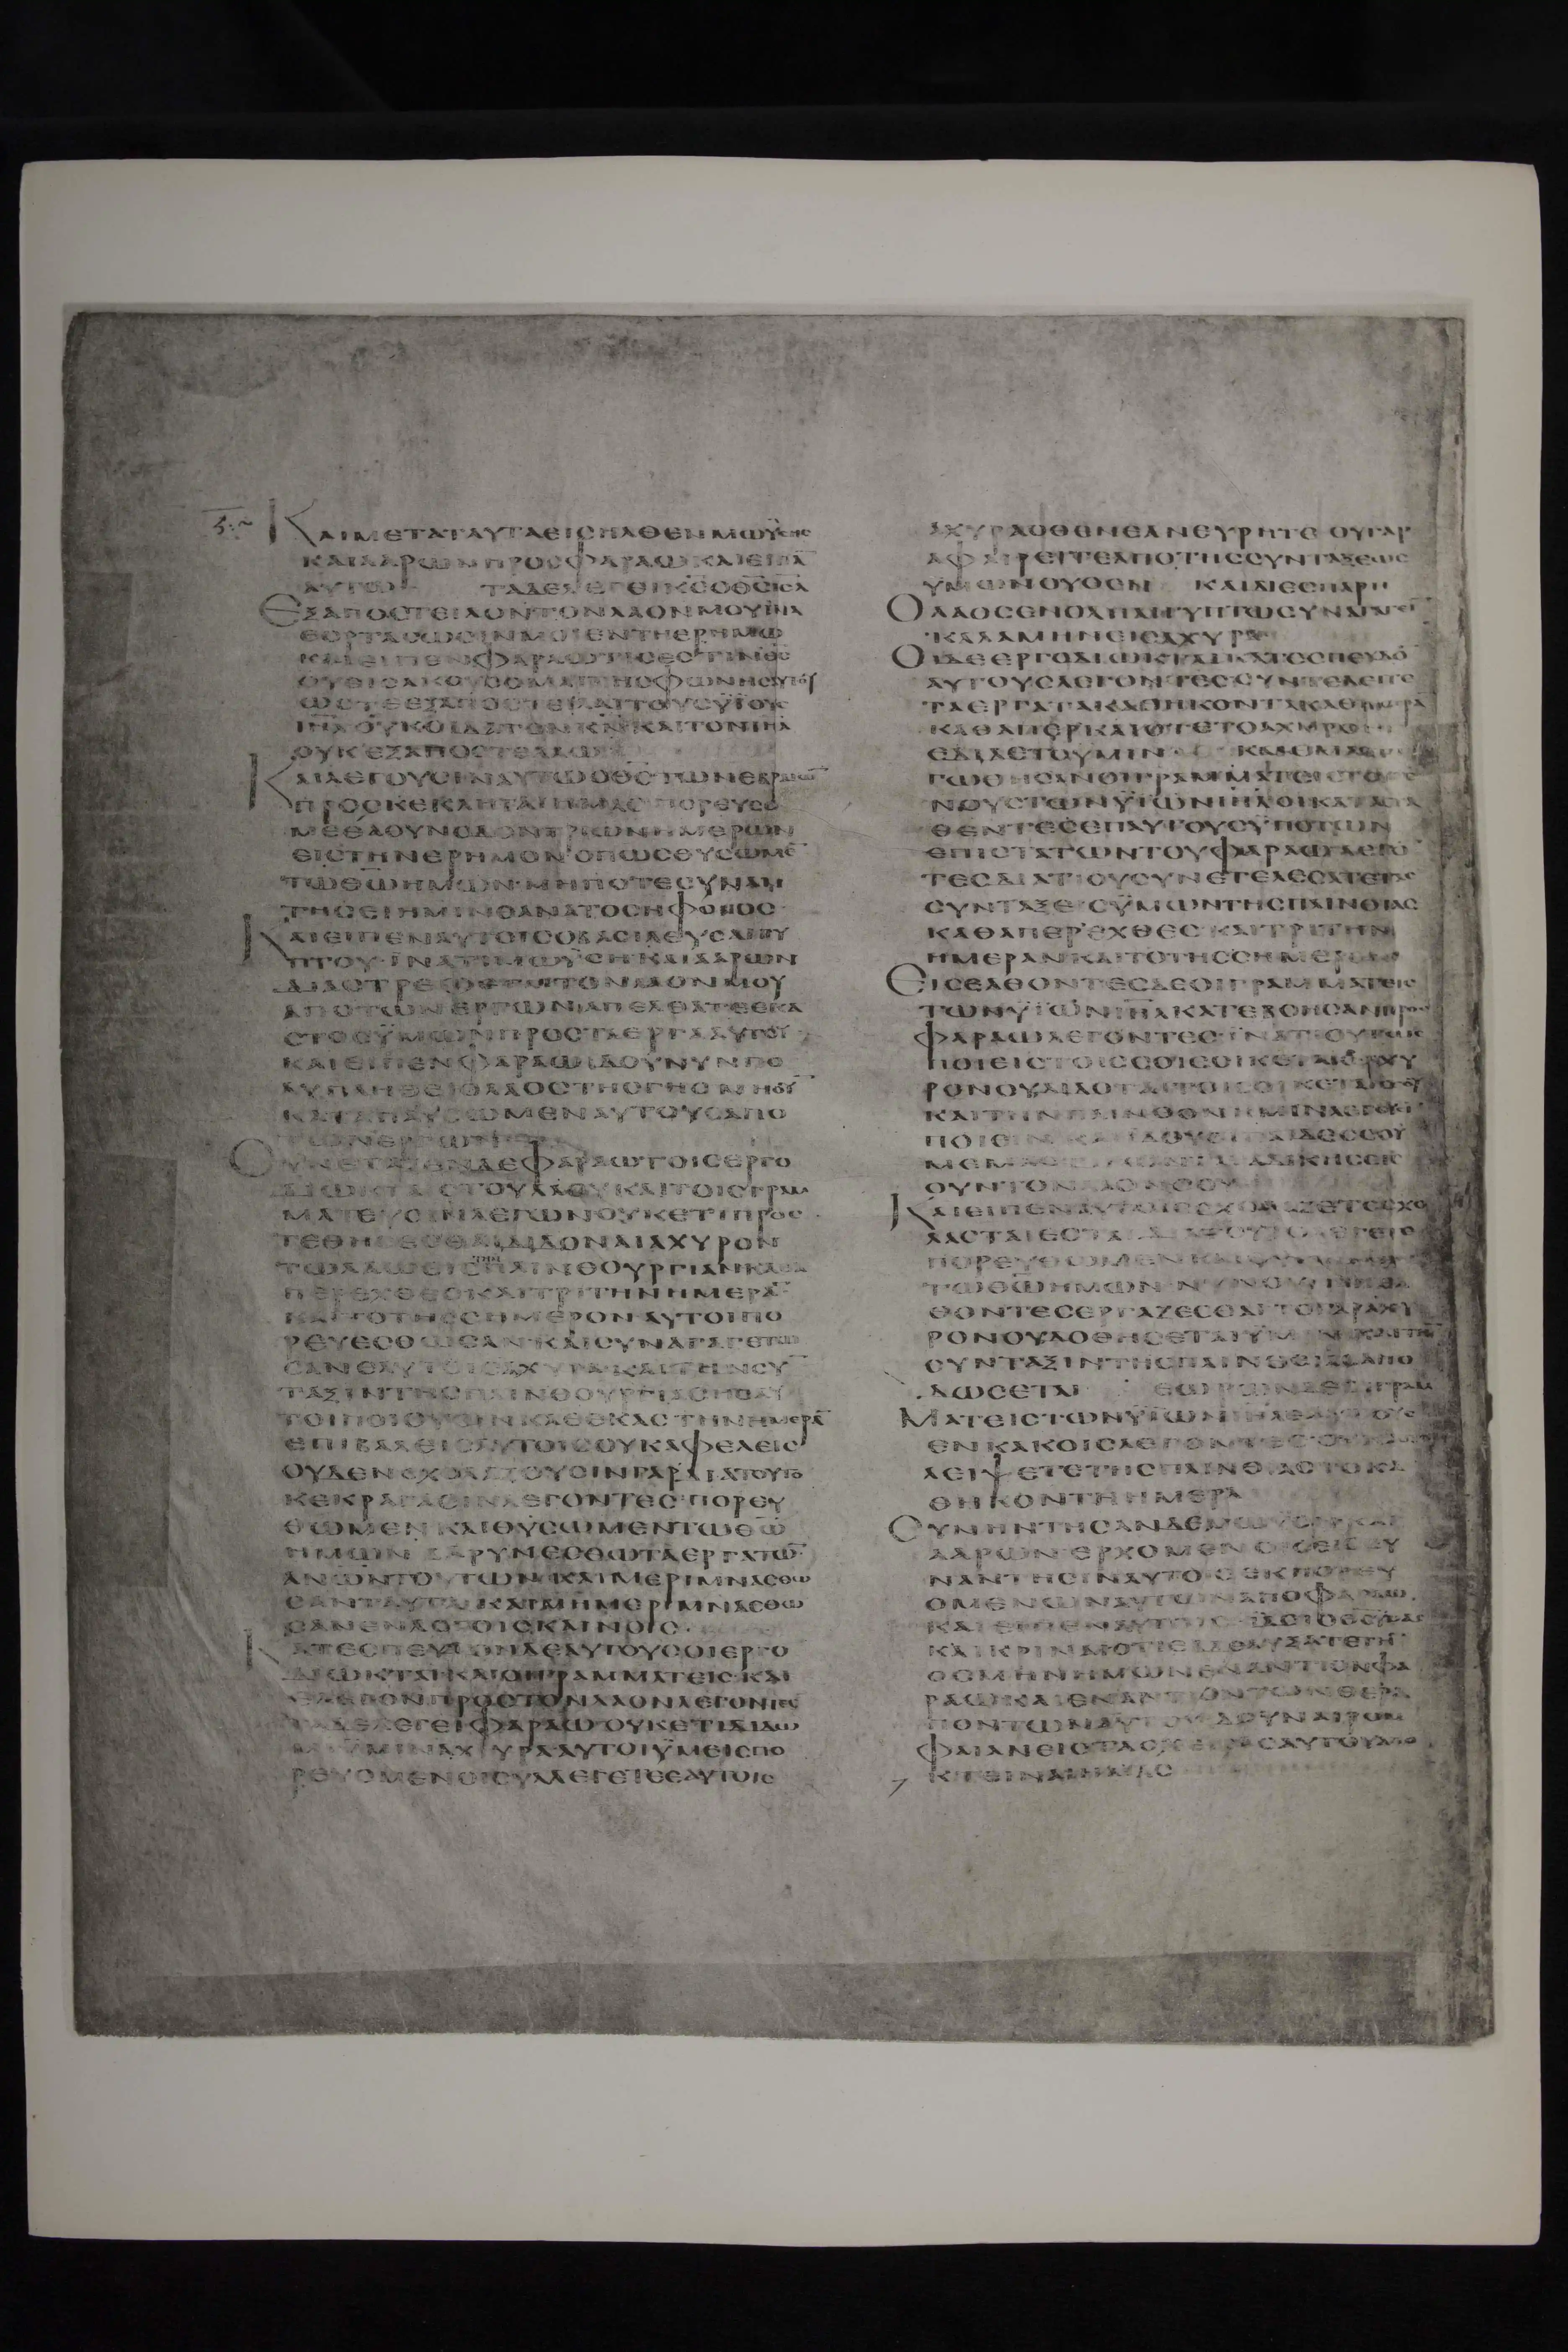 ΚΑΙΜΕΤΑΤΑΥΤΑΕΙΣΗΛΘΕΝΜΩΥΣΗΣ
ΚΑΙΑΑΡΩΝΠΡΟΣΦΑΡΑΩΚΑΙΕΙΠΑ̅
ΑΥΤΩ ΤΑΔΕΛΕΓΕΙΚ̅Σ̅ΟΘ̅Σ̅Ι̅Η̅Λ̅
ΕΞΑΠΟΣΤΕΙΛΟΝΤΟΝΛΑΟΝΜΟΥΙΝΑ
ΕΟΡΤΑΣΩΣΙΝΜΟΙΕΝΤΗΕΡΗΜΩ
ΚΑΙΕΙΠΕΝΦΑΡΑΩΤΙΣΕΣΤΙΝΘ̅Σ̅
ΟΥΕΙΣΑΚΟΥΣΟΜΑΙΤΗΣΦΩΝΗΣ
ΩΣΤΕΕΞΑΠΟΣΤΕΙΛΑΙΤΟΥΣΥΪΟΥΣ
Ι̅Η̅Λ̅ΟΥΚΟΙΔΑΤΟΝΚ̅Ν̅ΚΑΙΤΟΝΙ̅Η̅Λ̅
ΟΥΚΕΞΑΠΟΣΤΕΛΛΩ
ΚΑΙΛΕΓΟΥΣΙΝΑΥΤΩΟΘ̅Σ̅ΤΩΝΕΒΡΑΙΩ̅
ΠΡΟΣΚΕΚΛΗΤΑΙΗΜΑΣΠΟΡΕΥΣΟ
ΜΕΘΑΟΥΝΟΔΟΝΤΡΙΩΝΗΜΕΡΩΝ
ΕΙΣΤΗΝΕΡΗΜΟΝΟΠΩΣΘΥΣΩΜΕ̅
ΤΩΘ̅Ω̅ΗΜΩΝ·ΜΗΠΟΤΕΣΥΝΑΝ
ΤΗΣΕΙΗΜΙΝΘΑΝΑΤΟΣΗΦΟΝΟΣ
ΚΑΙΕΙΠΕΝΑΥΤΟΙΣΟΒΑΣΙΛΕΥΣΑΙΓΥ
ΠΤΟΥ·ΪΝΑΤΙΜΩΥΣΗΚΑΙΑΑΡΩΝ
ΔΙΑΣΤΡΕΦΕΤΑΙΤΟΝΛΑΟΝΜΟΥ
ΑΠΟΤΩΝΕΡΓΩΝΑΠΕΛΘΑΤΕΕΚΑ
ΣΤΟΣΥΜΩΝΠΡΟΣΤΑΕΡΓΑΑΥΤΟΥ
ΚΑΙΕΙΠΕΝΦΑΡΑΩΙΔΟΥΝΥΝΠΟ
ΛΥΠΛΗΘΕΙΟΛΑΟΣΤΗΣΓΗΣ
ΚΑΤΑΠΑΥΣΩΜΕΝΑΥΤΟΥΣΑΠΟ
ΤΩΝΕΡΓΩΝ
ΣΥΝΕΤΑΞΕΝΔΕΦΑΡΑΩΤΟΙΣΕΡΓΟ
ΔΙΩΚΤΑΙΣΤΟΥΛΑΟΥΚΑΙΤΟΙΣΓΡΑΜ
ΜΑΤΕΥΣΙΝΛΕΓΩΝΟΥΚΕΤΙΠΡΟΣ
ΤΕΘΗΣΕΣΘΑΙΔΙΔΟΝΑΙΑΧΥΡΟΝ
ΤΩΛΑΩΕΙΣΠΛΙΝΘΟΥΡΓΙΑΝΚΑΘΑ
ΠΕΡΕΧΘΕΣΚΑΙΤΡΙΤΗΝΗΜΕΡΑ̅
ΚΑΙΤΟΤΗΣΣΗΜΕΡΟΝΑΥΤΟΙΠΟ
ΡΕΥΕΣΘΩΣΑΝ·ΚΑΙΣΥΝΑΓΑΓΕΤΩ
ΣΑΝΕΑΥΤΟΙΣΑΧΥΡΑ·ΚΑΙΤΗΝΣΥ̅
ΤΑΞΙΝΤΗΣΠΛΙΝΘΟΥΡΓΙΑΣΗΣΑΥ
ΤΟΙΠΟΙΟΥΣΙΝΚΑΘΕΚΑΣΤΗΝΗΜΕΡΑ̅
ΕΠΙΒΑΛΕΙΣΑΥΤΟΙΣΟΥΚΑΦΕΛΕΙΣ
ΟΥΔΕΝΣΧΟΛΑΖΟΥΣΙΝΓΑΡΔΙΑΤΟΥΤΟ
ΚΕΚΡΑΓΑΣΙΝΛΕΓΟΝΤΕΣ·ΠΟΡΕΥ
ΘΩΜΕΝΚΑΙΘΥΣΩΜΕΝΤΩΘ̅Ω̅
ΗΜΩΝ ΒΑΡΥΝΕΣΘΩΤΑΕΡΓΑΤΩ̅
ΑΝΩΝΤΟΥΤΩΝ·ΚΑΙΜΕΡΙΜΝΑΣΘΩ
ΣΑΝΤΑΥΤΑ·ΚΑΙΜΗΜΕΡΙΜΝΑΣΘΩ
ΣΑΝΕΝΛΟΓΟΙΣΚΑΙΝΟΙΣ·
ΚΑΤΕΣΠΕΥΔΟΝΔΕΑΥΤΟΥΣΟΙΕΡΓΟ
ΔΙΩΚΤΑΙΚΑΙΟΙΓΡΑΜΜΑΤΕΙΣ·ΚΑΙ
ΕΛΕΓΟΝΠΡΟΣΤΟΝΛΑΟΝΛΕΓΟΝΤΕΣ
ΤΑΔΕΛΕΓΕΙΦΑΡΑΩ·ΟΥΚΕΤΙΔΙΔΩ
ΜΙΥΜΙΝΑΧΥΡΑ·ΑΥΤΟΙΫΜΕΙΣΠΟ
ΡΕΥΟΜΕΝΟΙΣΥΛΛΕΓΕΤΕΕΑΥΤΟΙΣ
ΑΧΥΡΑΟΘΕΝΕΑΝΕΥΡΗΤΕ ΟΥΓΑΡ
ΑΦΑΙΡΕΙΤΕΑΠΟΤΗΣΣΥΝΤΑΞΕΩΣ
ΥΜΩΝΟΥΘΕΝ ΚΑΙΔΙΕΣΠΑΡΗ
ΟΛΑΟΣΕΝΟΛΗΑΙΓΥΠΤΩΣΥΝΑΓΑΓΕΙ̅
ΚΑΛΑΜΗΝΕΙΣΑΧΥΡΑ
ΟΙΔΕΕΡΓΟΔΙΩΚΤΑΙΚΑΤΕΣΠΕΥΔΟ̅
ΑΥΤΟΥΣΛΕΓΟΝΤΕΣΣΥΝΤΕΛΕΙΤΕ
ΤΑΕΡΓΑΤΑΚΑΘΗΚΟΝΤΑΚΑΘΗΜΕΡΑ̅
ΚΑΘΑΠΕΡΚΑΙΟΤΕΤΟΑΧΥΡΟΝ
ΕΔΙΔΕΤΟΥΜΙΝ ΚΑΙΕΜΑΣΤΙ
ΓΩΘΗΣΑΝΟΙΓΡΑΜΜΑΤΕΙΣΤΟΥΓΕ
ΝΟΥΣΤΩΝΥΪΩΝΙ̅Η̅Λ̅ΟΙΚΑΤΑΣΤΑ
ΘΕΝΤΕΣΕΠΑΥΤΟΥΣΥΠΟΤΩΝ
ΕΠΙΣΤΑΤΩΝΤΟΥΦΑΡΑΩΛΕΓΟ̅
ΤΕΣΔΙΑΤΙΟΥΣΥΝΕΤΕΛΕΣΑΤΕΤΑΣ
ΣΥΝΤΑΞΕΙΣΫΜΩΝΤΗΣΠΛΙΝΘΙΑΣ
ΚΑΘΑΠΕΡΕΧΘΕΣΚΑΙΤΡΙΤΗΝ
ΗΜΕΡΑΝΚΑΙΤΟΤΗΣΣΗΜΕΡΟΝ
ΕΙΣΕΛΘΟΝΤΕΣΔΕΟΙΓΡΑΜΜΑΤΕΙΣ
ΤΩΝΥΪΩΝΙ̅Η̅Λ̅ΚΑΤΕΒΟΗΣΑΝΠΡΟΣ
ΦΑΡΑΩΛΕΓΟΝΤΕΣ·ΪΝΑΤΙΟΥΤΩΣ
ΠΟΙΕΙΣΤΟΙΣΣΟΙΣΟΙΚΕΤΑΙΣΑΧΥ
ΡΟΝΟΥΔΙΔΟΤΑΙΤΟΙΣΟΙΚΕΤΑΙΣΣΟΥ
ΚΑΙΤΗΝΠΛΙΝΘΟΝΗΜΙΝΛΕΓΟΥΣΙ̅
ΠΟΙΕΙΝ ΚΑΙΙΔΟΥΟΙΠΑΙΔΕΣΣΟΥ
ΜΕΜΑΣΤΙΓΩΝΤΑΙΑΔΙΚΗΣΕΙΣ
ΟΥΝΤΟΝΛΑΟΝΣΟΥ
ΚΑΙΕΙΠΕΝΑΥΤΟΙΣΣΧΟΛΑΖΕΤΕΣΧΟ
ΛΑΣΤΑΙΕΣΤΑΙΔΙΑΤΟΥΤΟΛΕΓΕΤΕ
ΠΟΡΕΥΘΩΜΕΝ
ΤΩΘ̅Ω̅ΗΜΩΝ·ΝΥΝΟΥΝΑΠΕΛ
ΘΟΝΤΕΣΕΡΓΑΖΕΣΘΑΙΤΟΓΑΡΑΧΥ
ΡΟΝΟΥΔΟΘΗΣΕΤΑΙΫΜΙΝΚΑΙΤΗ̅
ΣΥΝΤΑΞΙΝΤΗΣΠΛΙΝΘΕΙΑΣΑΠΟ
ΔΩΣΕΤΑΙ ΕΩΡΩΝΔΕΟΙΓΡΑΜ
ΜΑΤΕΙΣΤΩΝΥΪΩΝΙ̅Η̅Λ̅ΕΑΥΤΟΥΣ
ΕΝΚΑΚΟΙΣΛΕΓΟΝΤΕΣ
ΛΕΙΨΕΤΕΤΗΣΠΛΙΝΘΙΑΣΤΟΚΑ
ΘΗΚΟΝΤΗΗΜΕΡΑ
ΣΥΝΗΝΤΗΣΑΝΔΕΜΩΥΣΗΚΑΙ
ΑΑΡΩΝΕΡΧΟΜΕΝΟΙΣΕΙΣΣΥ
ΝΑΝΤΗΣΙΝΑΥΤΟΙΣΕΚΠΟΡΕΥ
ΟΜΕΝΩΝΑΥΤΩΝΑΠΟΦΑΡΑΩ
ΚΑΙΕΙΠΑΝΑΥΤΟΙΣ·ΪΔΟΙΟΘ̅Σ̅ΫΜΑΣ
ΚΑΙΚΡΙΝΑΙΟΤΙΕΒΔΕΛΥΞΑΤΕΤΗ̅
ΟΣΜΗΝΗΜΩΝΕΝΑΝΤΙΟΝΦΑ
ΡΑΩΚΑΙΕΝΑΝΤΙΟΝΤΩΝΘΕΡΑ
ΠΟΝΤΩΝΑΥΤΟΥΔΟΥΝΑΙΡΟΜ
ΦΑΙΑΝΕΙΣΤΑΣΧΕΙΡΑΣΑΥΤΟΥΑΠΟ
ΚΤΕΙΝΑΙΗΜΑΣ